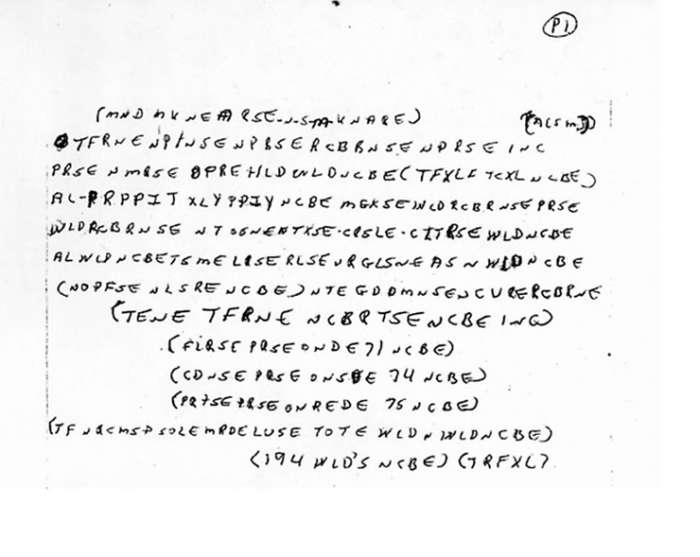 P1
(MND MKNEARSE-N-S-MKNARE) (ACSM)
TFRNENPINSENPBSERCBBRNSENPRSEINC
PRSENMRSEOPREHLDWLDNCBE(TFXLFTCXLNCBE)
AL-PRPPITXLYPPIYNCBEMGKSEWLDRCBRNSEPRSE
WLDRCBRNSENTOSNENTXSE-CRSLE-CITRSEWLDNCBE
ALWLPNCBETSMELRSERLSEURGLSNEASNWLDNCBE
(NOPFSENLSRENCBE)NTEGDDMNSENCURERCBRNE
(TENE TFRNE NCBRTSENCBEING)
(FLRSE PRSEONDE71NCBE)
(CDNSE PRSE ONSDE 74 NCBE)
(PRTSE PRSE ONREDE 75 NCBE)
(TFNRCMSPSOLEMRDELUSE TOTE WLDNWLDNCBE)
(194 WLD'S NCBE)(TRFXL)